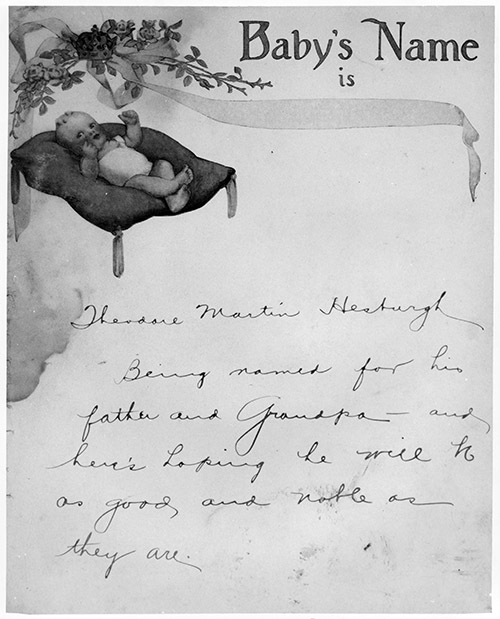 Baby's Name
is
Theodore Martin Hesburgh
Being named for his
father and Grandpa – and
here's hoping he will be
as good, and noble as
they are.